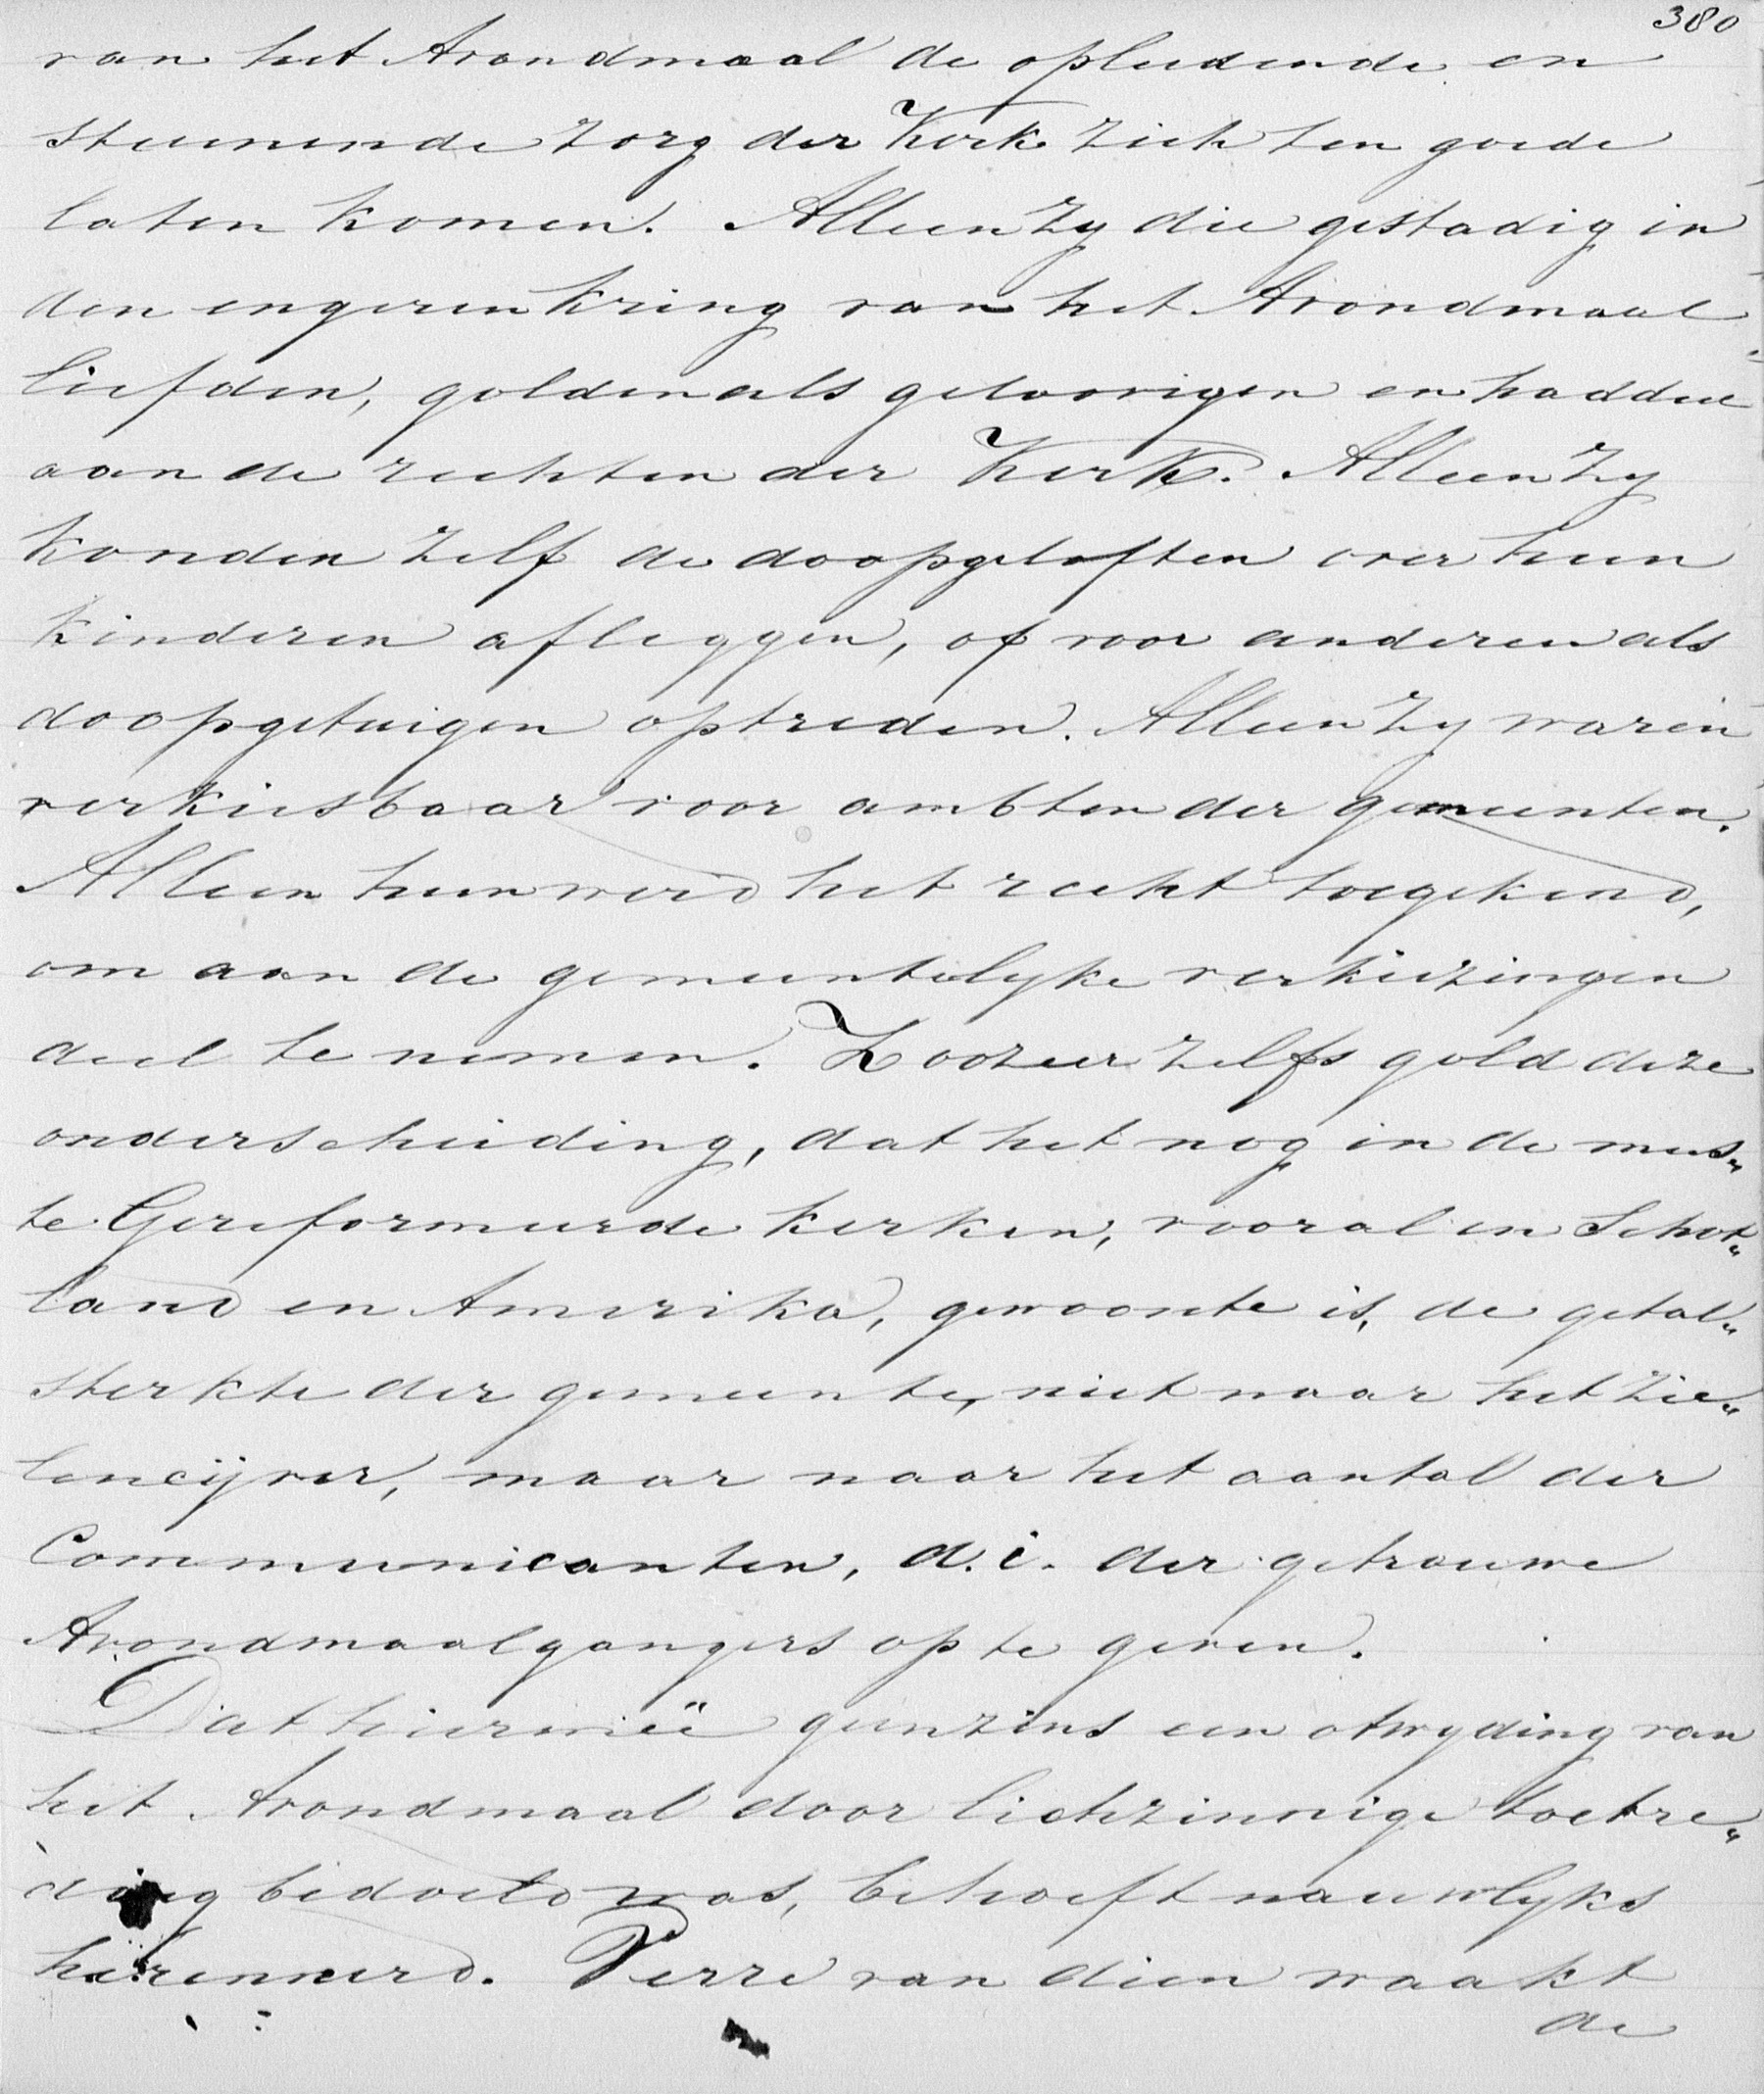 380
van het Avondmaal de opleidende en
steunende zorg der Kerk zich ten goede
laten komen. Alleen zy die gestadig in
den engeren kring van het Avondmaal
liefden, golden als geloovigen en hadden
aan de rechten der Kerk. Alleen zy
konden zelf de doopgeloften over hun
kinderen afleggen, of voor anderen als
doopgetuigen optreden. Alleen zy waren
verkiesbaar voor ambten der gemeenten.
Alleen hun werd het recht toegekend,
om aan de gemeentelyke verkiezingen
deel te nemen. Zoozeer zelfs gold deze
onderscheiding, dat het nog in de mees„
te Gereformeerde kerken, vooral in Schot„
land en Amerika, gewoonte is, de getal„
sterkte der gemeente, niet naar het zie„
lencijver, maar naar het aantal der
Communicanten, d.i. der getrouwe
Avondmaalgangers op te geven.
Dat hiermeê geenzins een otwyding van
het Avondmaal door lichzinnige toetre„
ding bedoeld was, behoeft nauwlyks
herinnerd. Verre van dien waakt
de